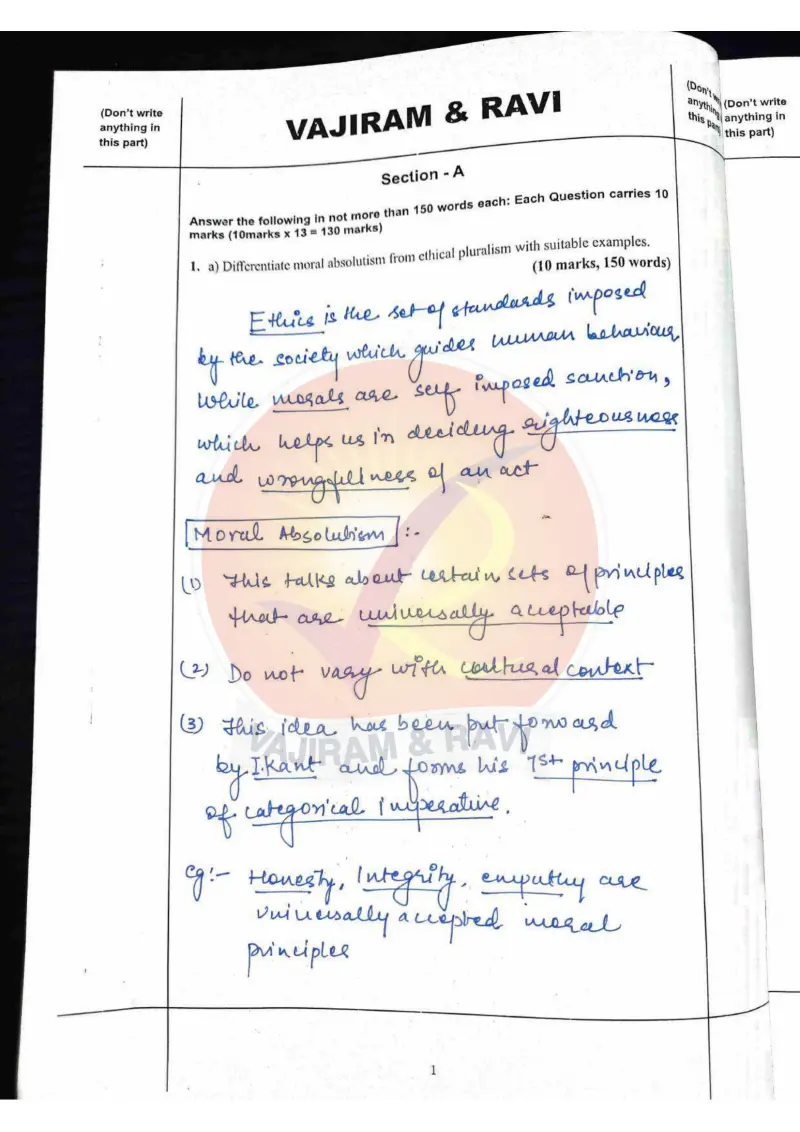 (Don't write
anything in
this part)
VAJIRAM & RAVI
(Don't w
anything
this par
(Don't write
anything in
this part)
Section - A
Answer the following in not more than 150 words each: Each Question carries 10
marks (10marks x 13 = 130 marks)
1. a) Differentiate moral absolutism from ethical pluralism with suitable examples.
(10 marks, 150 words)
Ethics is the set of standards imposed
by the society which guides human behaviour,
while morals are self imposed sanction,
which helps us in deciding righteousness
and wrongfullness of an act
Moral Absolutism :-
(1) This talks about certain sets of principles
that are universally acceptable
(2) Do not vary with cultural context
(3) This idea has been put forward
VAJIRAM & RAVI
by I.Kant and forms his 1st principle
of categorical imperative.
Eg:- Honesty, Integrity, empathy are
universally accepted moral
principles
1